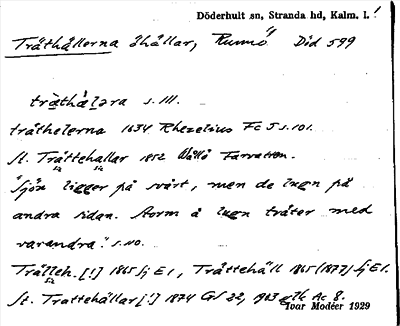 Döderhult sn, Stranda hd, Kalm. l.
Tråthållorna åhållar, Runnö Död 599
tràthàlara s. 111.
tråthelerna 1634 Rhezelius Fc 5 s. 101.
St. Tråttehallar 1852 Wållö Farvatten.
"Sjön ligger på svårt, men de lugn på
andra sidan. Storm å lugn tråter med
varandra". s. 110.
Trätteh. [!] 1865 Sj E1, Tråttehäll 1865 (1877) Sj E1.
St. Trattehällar [!] 1874 GS 32, 1903 Ac 8.
Ivar Modéer 1929